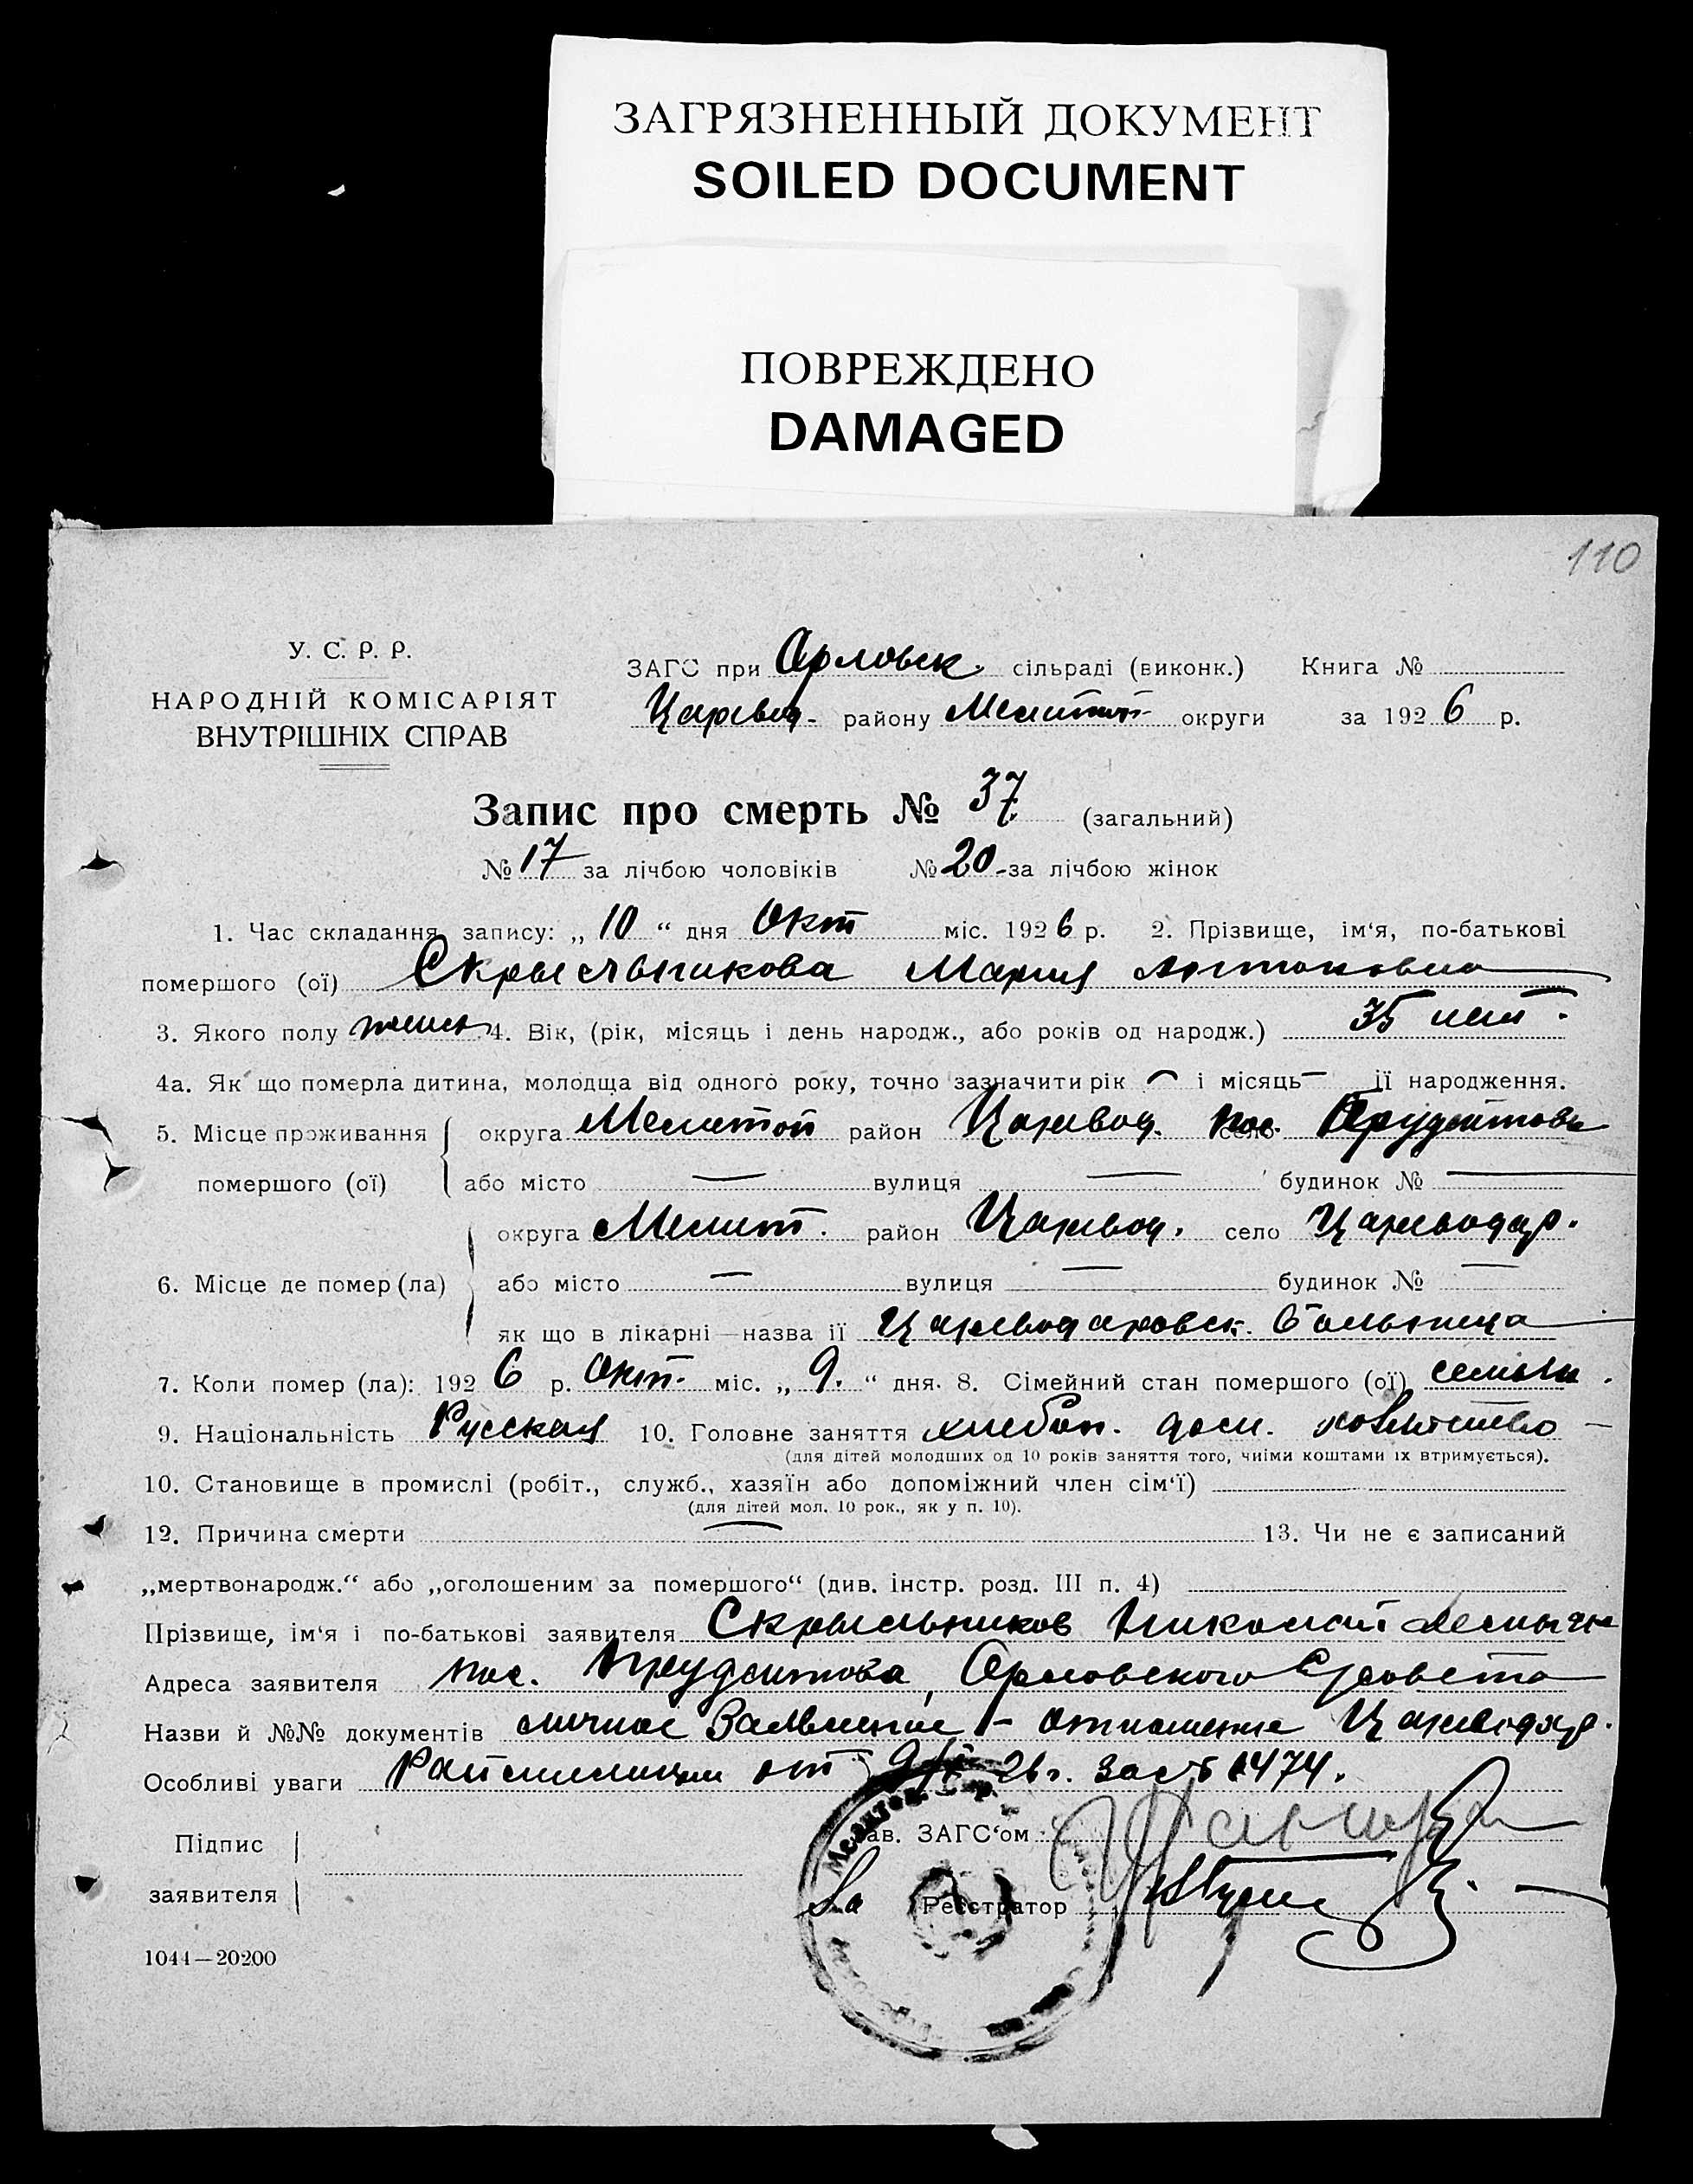 ЗАГРЯЗНЕННЫЙ ДОКУМЕНТ
SOILED DOCUMENT
ПОВРЕЖДЕНО
DAMAGED
110
У. С. Р. Р.
НАРОДНІЙ КОМІСАРІЯТ
ВНУТРІШНІХ СПРАВ
ЗАГС при Орловск. сільраді (виконк.) Книга №
Царевод- району Мелитоп- округи за 1926 р.
Запис про смерть № 37 (загальний)
№ 17 за лічбою чоловіків № 20 за лічбою жінок
1. Час складання запису: „ 10 “ дня Окт міс. 1926 р. 2. Прізвище, ім‘я, по-батькові
помершого (ої) Скрыльникова Мария Антоновна
3. Якого полу женск 4. Вік, (рік, місяць і день народж., або років од народж.) 35 лет.
4а. Як що померла дитина, молодща від одного року, точно зазначити рік — і місяць — ії народження.
5. Місце проживання округа Мелитоп район Царевод. село пос.
помершого (ої) або місто — вулиця — будинок № —
округа Мелит. район Царевод. село Цареводар.
6. Місце де помер (ла) або місто — вулиця — будинок № —
як що в лікарні — назва ії Цареводаровск. больница
7. Коли помер (ла): 1926 р. Окт. міс. „ 9. “ дня. 8. Сімейний стан помершого (ої)
9. Національність Русская 10. Головне заняття хлебоп. дом. хозяйство
(для дітей молодших од 10 років заняття того, чиїми коштами їх втримується).
10. Становище в промислі (робіт., служб., хазяїн або допоміжний член сім‘ї)
(для дітей мол. 10 рок., як у п. 10).
12. Причина смерти — 13. Чи не є записаний
„мертвонародж.“ або „оголошеним за помершого“ (див. інстр. розд. III п. 4)
Прізвище, ім‘я і по-батькові заявителя Скрыльников Николай
Адреса заявителя пос. Орловского с/совета
Назви й №№ документів личное заявление — отношение Цареводар.
Особливі уваги Раймилиции от 9/X 26 г. за № 1474.
Підпис
заявителя
Зав. ЗАГС‘ом
За Реєстратор
1044—20200